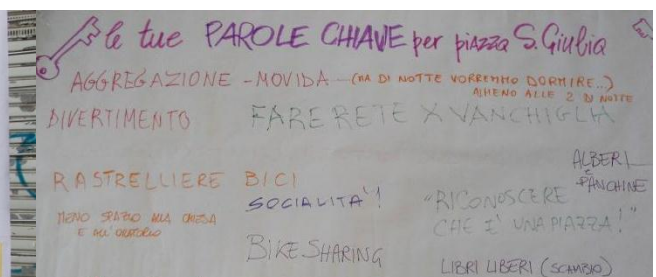 le tue PAROLE CHIAVE per piazza S. Giulia
AGGREGAZIONE - MOVIDA - (MA DI NOTTE VORREMMO DORMIRE..)
ALMENO ALLE 2 DI NOTTE
DIVERTIMENTO FARE RETE X VANCHIGLIA
ALBERI
E
PANCHINE
RASTRELLIERE BICI
SOCIALITA'!
"RICONOSCERE
CHE E' UNA PIAZZA!"
MENO SPAZIO ALLA CHIESA
E ALL'ORATORIO
BIKE SHARING
LIBRI LIBERI (SCAMBIO)